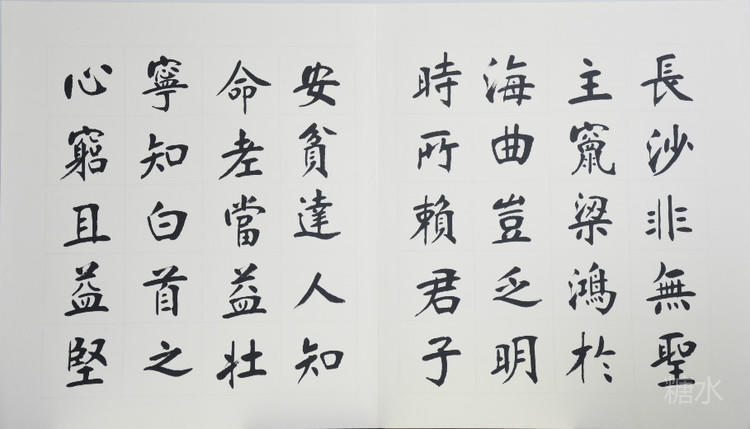 長沙非無聖
主竄梁鴻於
海曲豈乏明
時所賴君子
安貧達人知
命老當益壯
寧知白首之
心窮且益堅
糖水